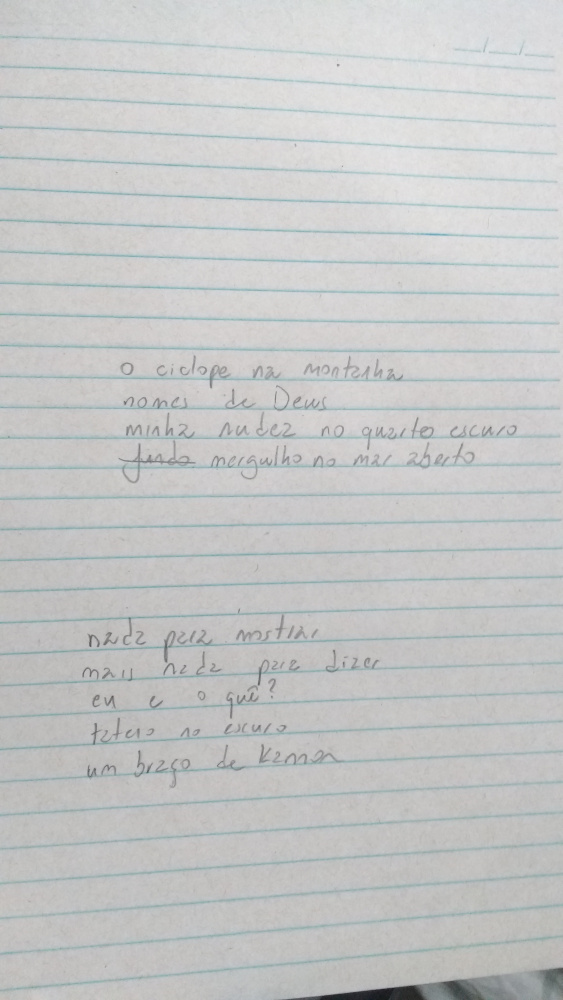 o ciclope na montanha
nomes de Deus
minha nudez no quarto escuro
fundo mergulho no mar aberto
nada para mostrar
mais nada para dizer
eu e o quê?
tateio no escuro
um braço de Kannon